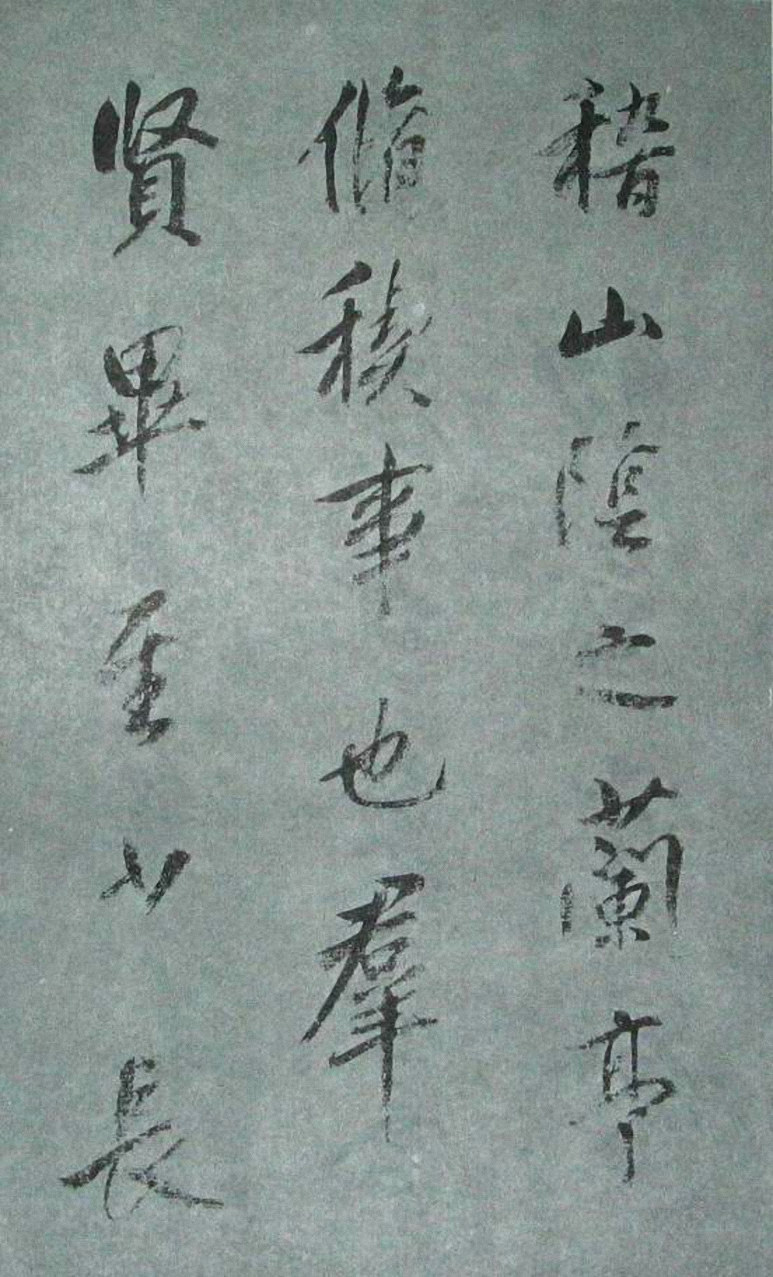 稽山陰之蘭亭
脩稧事也羣
賢畢至少長